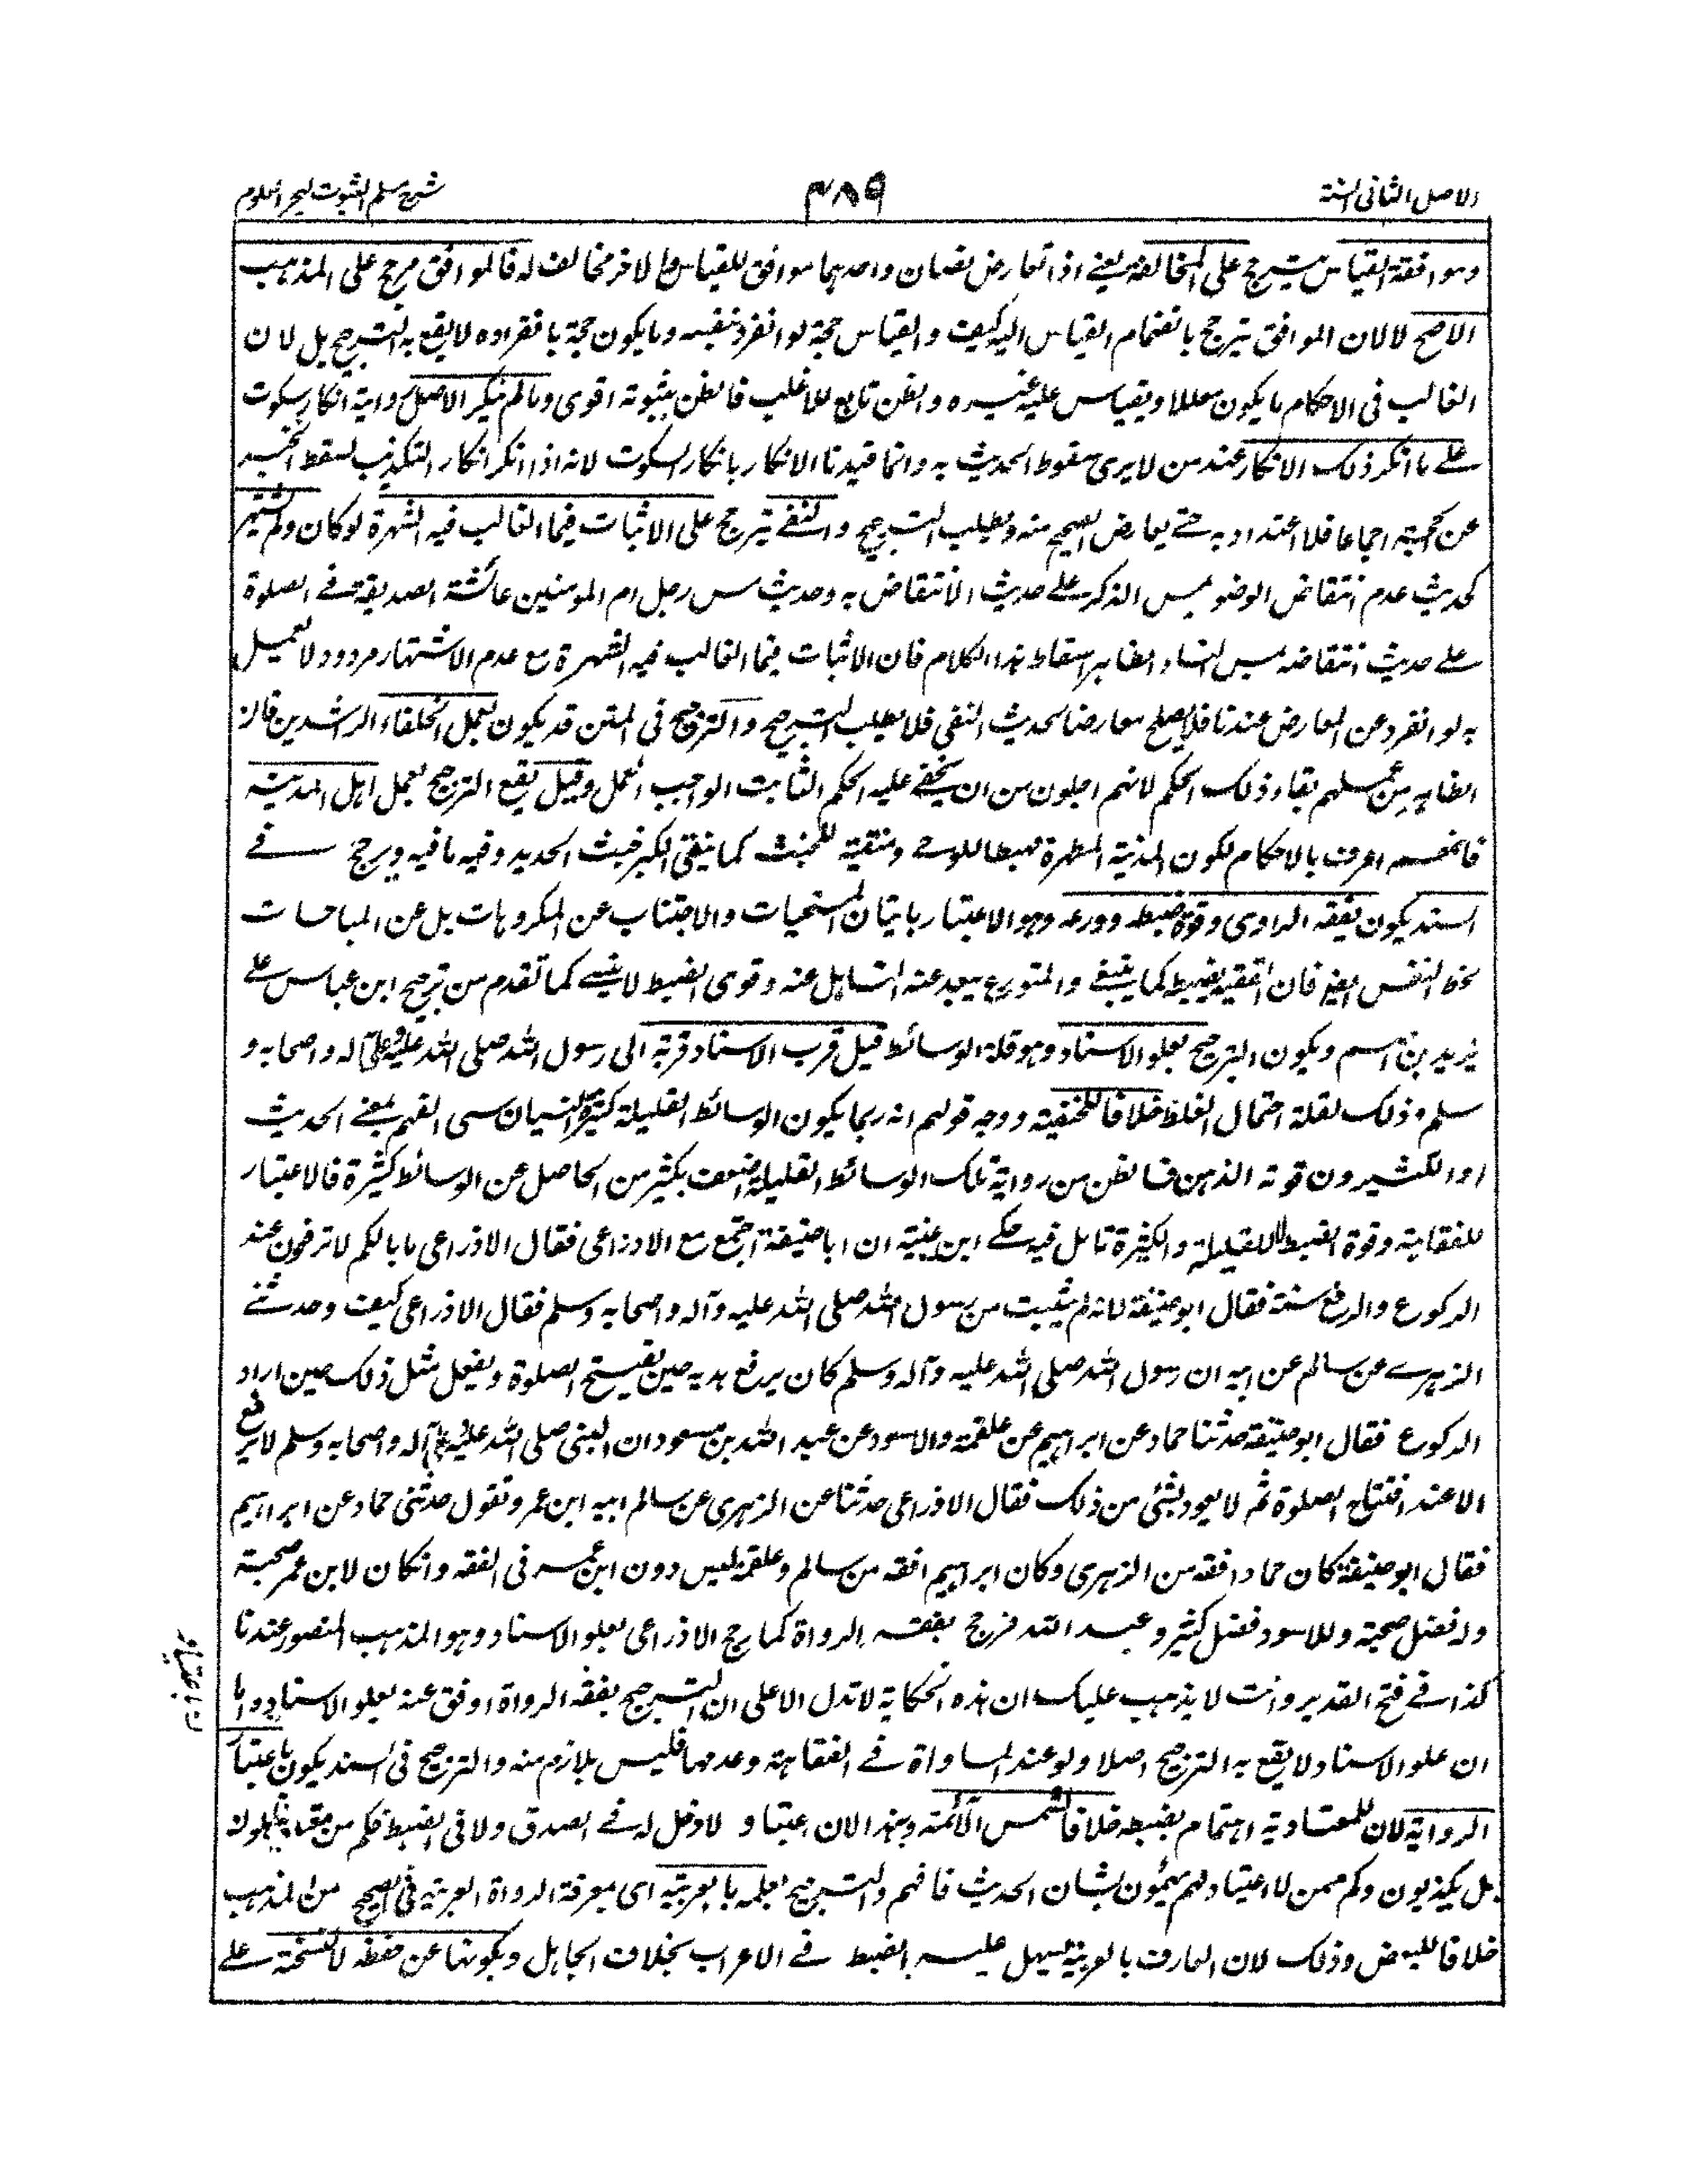 الاصل الثانی السنة ۴۸۹ شرح مسلم الثبوت لبحر العلوم
وموافقة القیاس یترجح علی المخالفة یعنے اذا تعارض نصان واحدهما موافق للقیاس والاخر مخالف له فالموافق مرجح علی المذهب
الاصح لا لان الموافق یترجح بانضمام القیاس الیه کیف والقیاس حجة لو انفرد بنفسه وما یکون حجة بانفراده لا یقع به الترجیح بل لان
الغالب فی الاحکام ما یکون معللا ویقیاس علیه غیره والظن تابع للاغلب فالظن بثبوته اقوی وما لم ینکر الاصل روایة انکار سکوت
علے ما انکر ذلک الانکار عند من لا یری سقوط الحدیث به وانما قیدنا الانکار بانکار السکوت لانه اذا انکر انکار التکذیب لسقط الخبر
عن الحجیة اجماعا فلا اعتداد به حتے یعارض الصحیح منه ویطلب الترجیح والنفے یترجح علی الاثبات فیما الغالب فیه الشهرة لو کان ولم یشتهر
کحدیث عدم انتقاض الوضو بمس الذکر علے حدیث الانتقاض به وحدیث مس رجل ام المومنین عائشة الصدیقة فے الصلوة
علے حدیث انتقاضه بمس النساء الظاهر اسقاط هذا الکلام فان الاثبات فیما الغالب فیه الشهرة مع عدم الاشتهار مردود لا یعمل
به لو انفرد عن المعارض عندنا فلا یصلح معارضا لحدیث النفی فلا یطلب الترجیح والترجیح فی المتن قد یکون بعمل الخلفاء الراشدین فان
الظاهر من عملهم بقاء ذلک الحکم لانهم اجلون من ان یخفے علیه الحکم الثابت الواجب العمل وقیل یقع الترجیح بعمل اهل المدینة
فانهم اعرف بالاحکام لکون المدینة المطهرة مهبطا للوحے ومنقیة للخبث کما ینقی الکیر خبث الحدید وفیه ما فیه ویرجح فے
السند یکون بفقه الراوی وقوة ضبطه وورعه وهو الاعتبار باتیان المستحبات والاجتناب عن المکروهات بل عن المباحات
لحظ النفس ایضا فان الفقیه یضبط کما ینبغے والمتورع یبعد عنه التساهل عنه وقوی الضبط لا ینسے کما تقدم من ترجیح ابن عباس علے
یزید بن الاصم ویکون الترجیح بعلو الاسناد وهو قلة الوسائط قیل قرب الاسناد قربة الی رسول الله صلی الله علیه وعلی آله واصحابه و
سلم وذلک لقلة احتمال الغلط خلافا للحنفیة ووجه قولهم انه ربما یکون الوسائط القلیلة کثیر النسیان سیئ الفهم بمعنے الحدیث
او الکثیرون قوته الذهن فالظن من روایة تلک الوسائط القلیلة اضعف بکثیر من الحاصل عن الوسائط کثیرة فالاعتبار
للفقاهة وقوة الضبط لا للقلیلة والکثیرة تامل فیه حکے ابن عینیة ان اباحنیفة اجتمع مع الاوزاعی فقال الاوزاعی ما بالکم لا ترفعون عند
الرکوع والرفع منه فقال ابوحنیفة لانه لم یثبت من رسول الله صلی الله علیه وآله واصحابه وسلم فقال الاوزاعی کیف وحدثنے
الزهرے عن سالم عن ابیه ان رسول الله صلی الله علیه وآله وسلم کان یرفع یدیه حین یفتتح الصلوة ویفعل مثل ذلک حین اراد
الرکوع فقال ابوحنیفة حدثنا حماد عن ابراهیم عن علقمة والاسود عن عبد الله بن مسعود ان النبی صلی الله علیه وعلی آله واصحابه وسلم لا یرفع
الا عند افتتاح الصلوة ثم لا یعود بشئی من ذلک فقال الاوزاعی حدثنا عن الزهری عن سالم ابیه ابن عمر وتقول حدثنی حماد عن ابراهیم
فقال ابوحنیفة کان حماد افقه من الزهری وکان ابراهیم افقه من سالم وعلقمة لیس دون ابن عمر فی الفقه وانکان لابن عمر صحبة
وله فضل صحبة وللاسود فضل کثیر وعبد الله فرجح بفقه الرواة کما رجح الاوزاعی بعلو الاسناد وهو المذهب المنصور عندنا
کذا فے فتح القدیر وانت لا یذهب علیک ان هذه الحکایة لا تدل الا علی ان الترجیح بفقه الرواة اوفق عنه بعلو الاسناد واما
ان علو الاسناد لا یقع به الترجیح اصلا ولو عند المساواة فے الفقاهة وعدمها فلیس بلازم منه والترجیح فی السند یکون باعتیاد
الروایة لان للمعتاد به اهتمام بضبطه خلافا لشمس الائمة وهذا لان اعتیاد لا دخل له فے الصدق ولا فی الضبط فکم من
بل یکذبون وکم ممن لا اعتیاد لهم یهتمون بشان الحدیث فافهم والترجیح بعلمه بالعربیة ای بمعرفة الرواة العربیة فی الصحیح من المذهب
خلافا للبعض وذلک لان العارف بالعربیة یسهل علیه الضبط فے الاعراب بخلاف الجاهل وبکونها عن حفظه لا نسخة علے